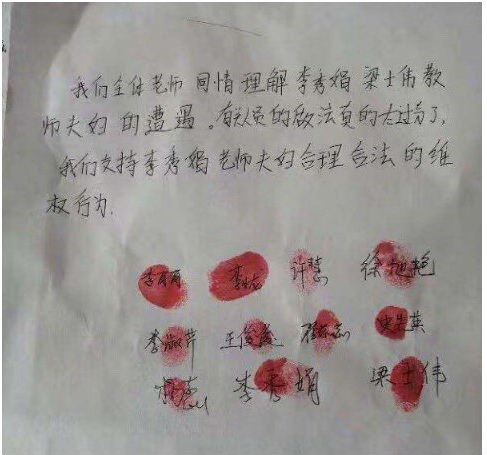 我们全体老师同情理解李秀娟 梁士伟教
师夫妇的遭遇。有关人员的做法真的太过分了,
我们支持李秀娟老师夫妇合理合法的维
权行为.
李丽丽 许慧 徐艳艳
李淑芹 王俊霞
李秀娟 梁士伟